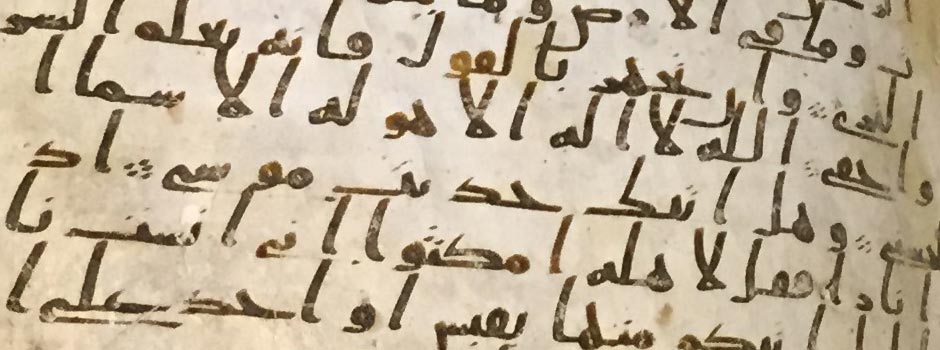 وما في الارض وما
الثرى وان تجهر بالقول فانه يعلم السر
واخفى الله لا اله الا هو له الاسما ا
لحسنى وهل اتىك حديث موسى اذ
را نارا فقال لاهله امكثوا اني انست نا
اتيكم منها بقبس او اجد على ا